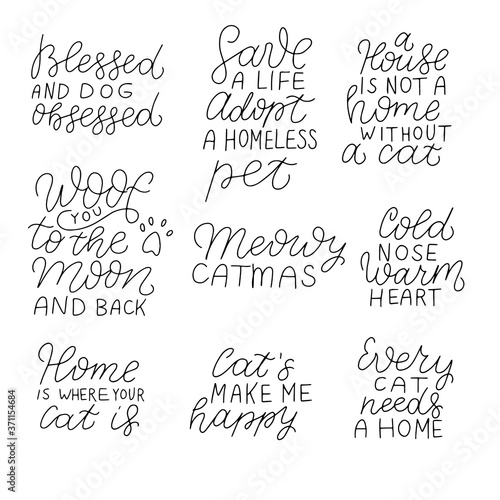 Blessed
AND DOG
obsessed
Save
A LIFE
adopt
A HOMELESS
pet
a
House
IS NOT A
home
WITHOUT
a cat
Woof
YOU
to the
Moon
AND BACK
Meowy
CATMAS
Cold
NOSE
Warm
HEART
Home
IS WHERE YOUR
cat is
Cat's
MAKE ME
happy
Every
CAT
needs
A HOME
Adobe Stock | #371154684